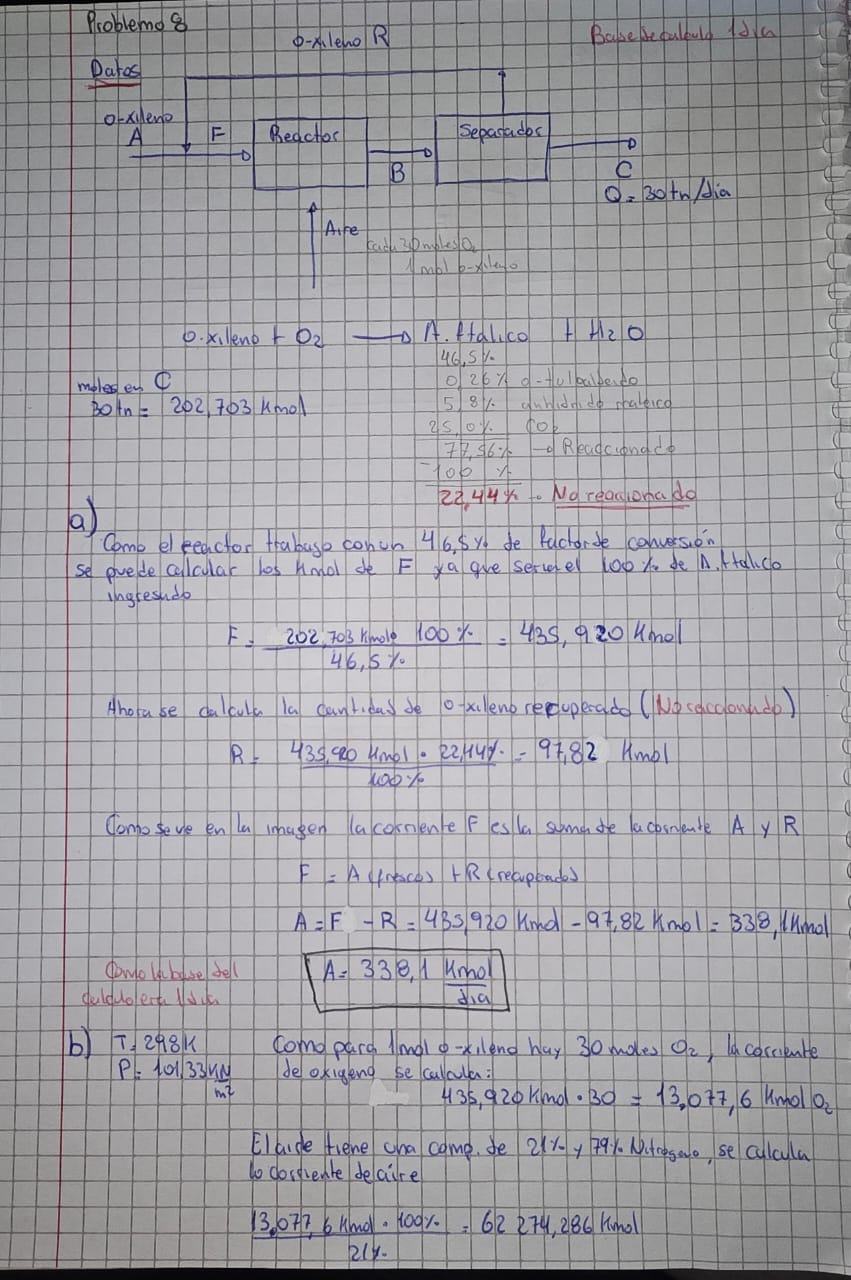 Problema 8
o-xileno R
Base de calculo 1 dia
Datos
o-xileno
A
F
Reactor
Separador
B
C
Q = 30 tn/dia
Aire
cada 30 moles O2
1 mol o-xileno
O.xileno + O2 → A.ftalico + H2O
46,5%
0,26% o-tulpaldeido
moles en C
5,8% anhidrido maleico
30 tn = 202,703 Kmol
25,0% CO2
77,56% → Reaccionado
-100 %
22,44% → No reaccionado
a)
Como el reactor trabaja con un 46,5% de factor de conversión
se puede calcular los Kmol de F ya que seria el 100% de A.ftalico
ingresado
F = 202,703 Kmol • 100 % = 435,920 Kmol
46,5%
Ahora se calcula la cantidad de o-xileno recuperado (No reaccionado)
R = 435,920 Kmol • 22,44% = 97,82 Kmol
100%
Como se ve en la imagen la corriente F es la suma de la corriente A y R
F = A (fresco) + R (recuperado)
A = F - R = 435,920 Kmol - 97,82 Kmol = 338,1 Kmol
Como la base del
calculo era 1 dia
A = 338,1 Kmol
dia
b) T = 298K
Como para 1mol o-xileno hay 30 moles O2, la corriente
P = 101,33 KN
m²
de oxigeno se calcula:
435,920 Kmol • 30 = 13,077,6 Kmol O2
El aide tiene una comp. de 21% y 79% Nitrogeno, se calcula
la corriente de aire
13,077,6 Kmol • 100% = 62 274,286 Kmol
21%